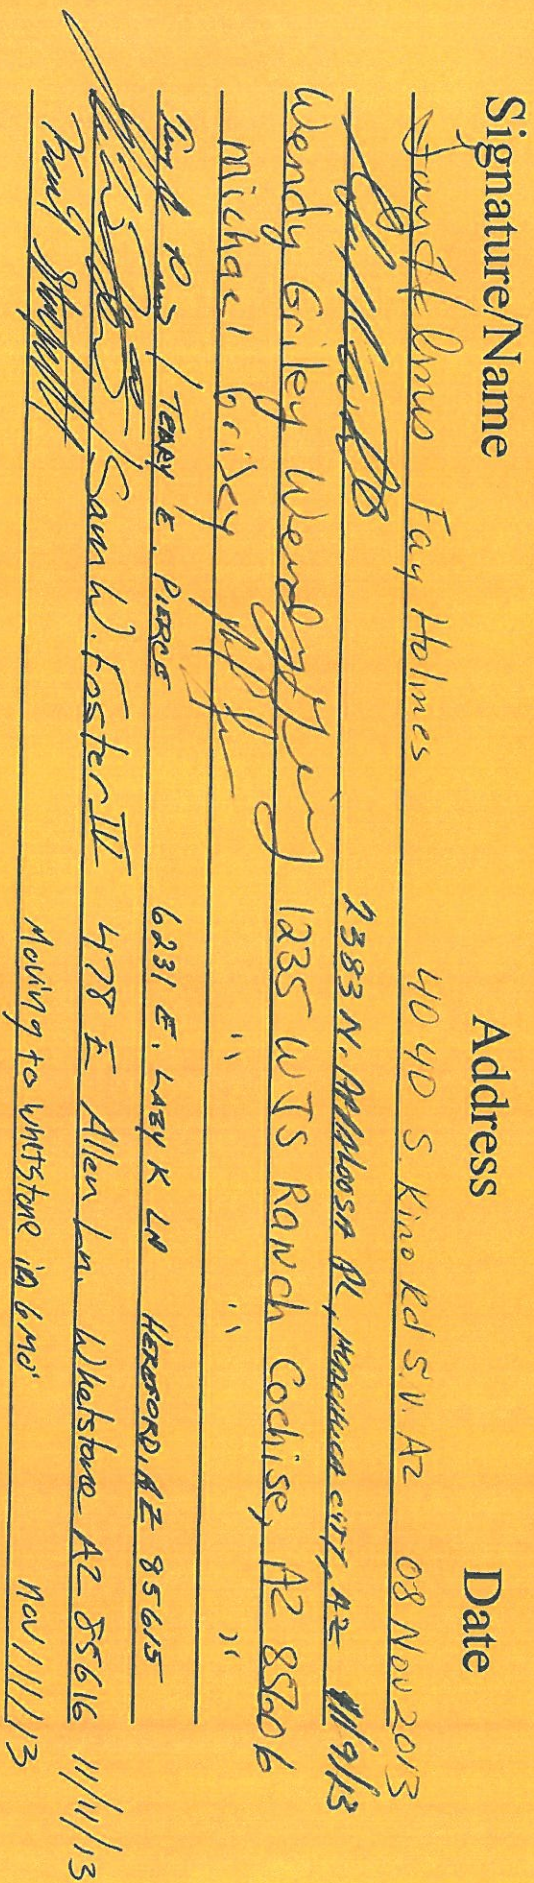 Signature/Name Address Date
Fay Holmes Fay Holmes 4040 S. Kino Rd S.V. AZ 08 Nov 2013
2383 N. APPALOOSA PL, HUACHUCA CITY, AZ 11/9/13
Wendy Griley Wendy 1235 W JS Ranch Cochise, AZ 85606
Michael Griley " " "
/ TERRY E. PIERCE 6231 E. LAZY K LN HEREFORD, AZ 85615
/ Sam W. Foster IV 478 E Allen Ln. Whetstone AZ 85616 11/11/13
Moving to whitstone in 6 mo' nov/11/13